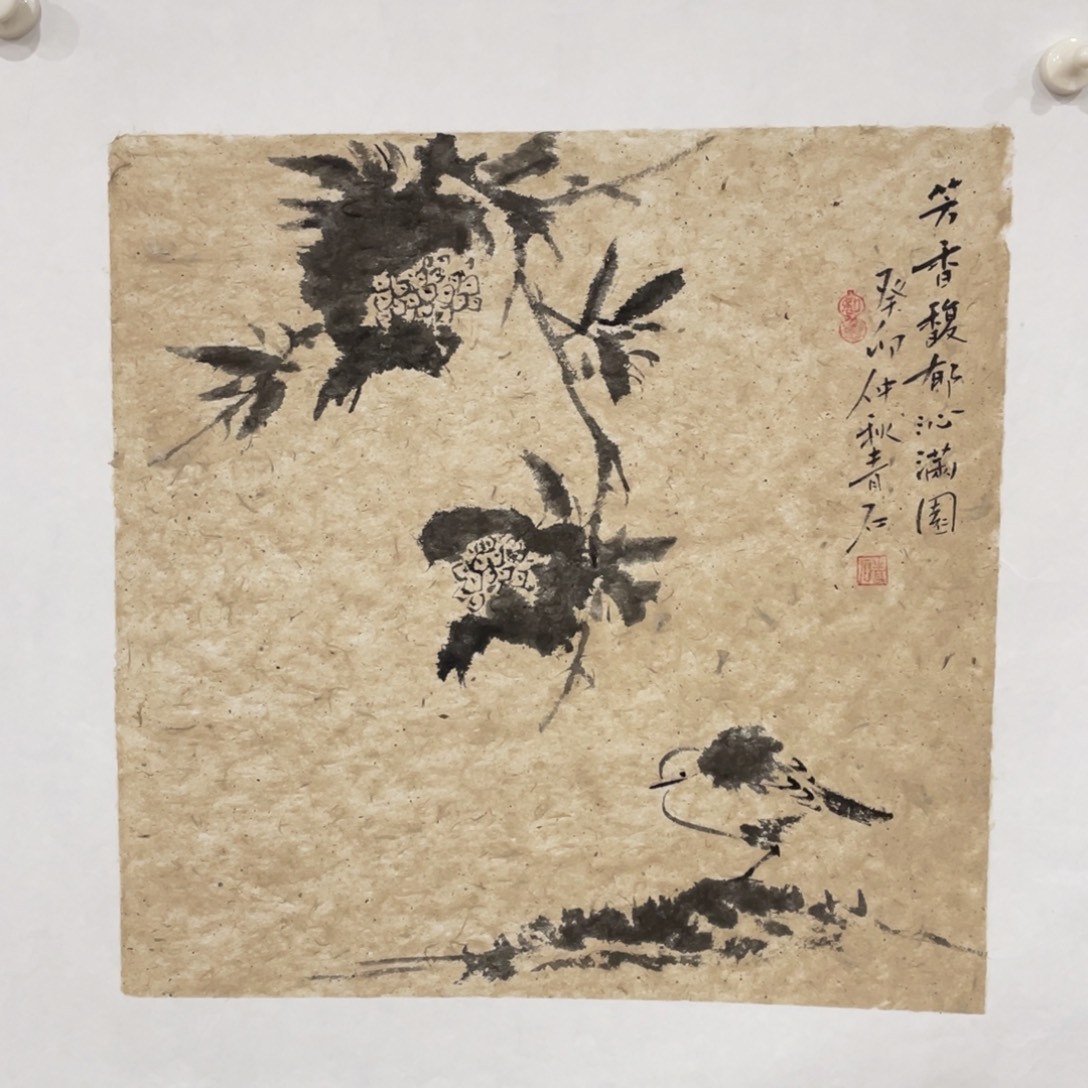 芳香馥郁沁满園
癸卯仲秋青石